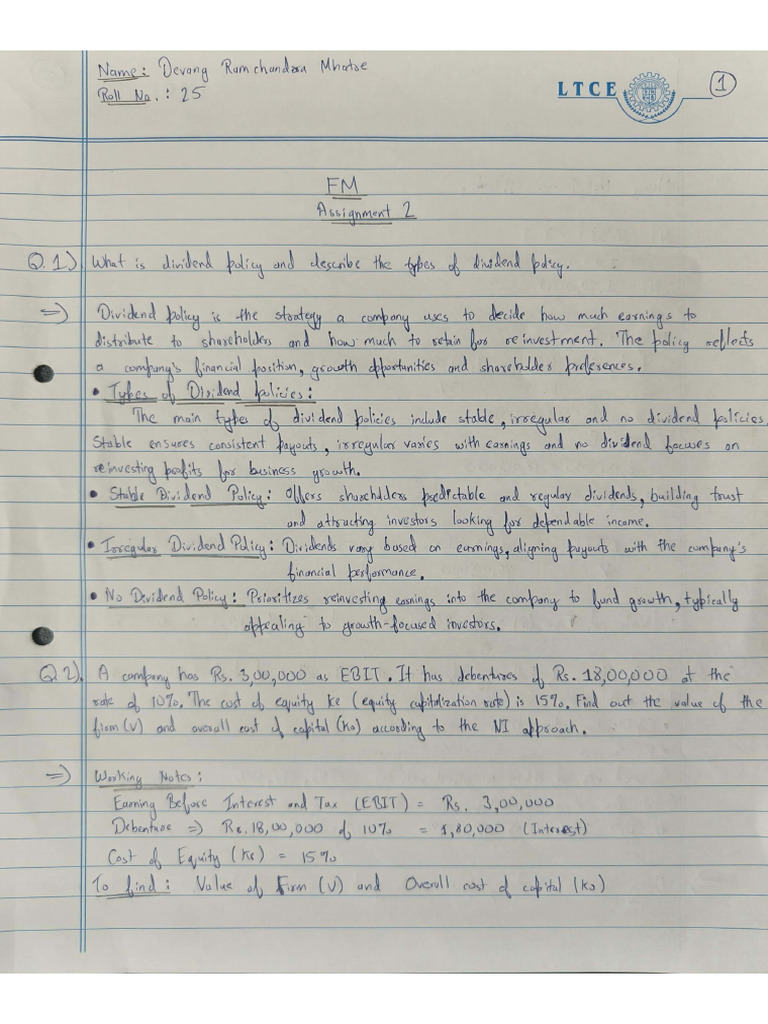 Name: Devang Ramchandra Mhatre
Roll No.: 25
LTCE
1
FM
Assignment 2
Q.1) What is dividend policy and describe the types of dividend policy.
=> Dividend policy is the strategy a company uses to decide how much earnings to
distribute to shareholders and how much to retain for reinvestment. The policy reflects
a company's financial position, growth opportunities and shareholder preferences.
• Types of Dividend Policies:
The main types of dividend policies include stable, irregular and no dividend policies.
Stable ensures consistent payouts, irregular varies with earnings and no dividend focuses on
reinvesting profits for business growth.
• Stable Dividend Policy: Offers shareholders predictable and regular dividends, building trust
and attracting investors looking for dependable income.
• Irregular Dividend Policy: Dividends vary based on earnings, aligning payouts with the company's
financial performance.
• No Dividend Policy: Prioritizes reinvesting earnings into the company to fund growth, typically
appealing to growth-focused investors.
Q2) A company has Rs. 3,00,000 as EBIT. It has debentures of Rs. 18,00,000 at the
rate of 10%. The cost of equity ke (equity capitalization rate) is 15%. Find out the value of the
firm (V) and overall cost of capital (Ko) according to the NI approach.
=> Working Notes:
Earning Before Interest and Tax (EBIT) = Rs. 3,00,000
Debenture => Rs. 18,00,000 of 10% = 1,80,000 (Interest)
Cost of Equity (Ke) = 15%
To find: Value of Firm (V) and Overall cost of capital (Ko)